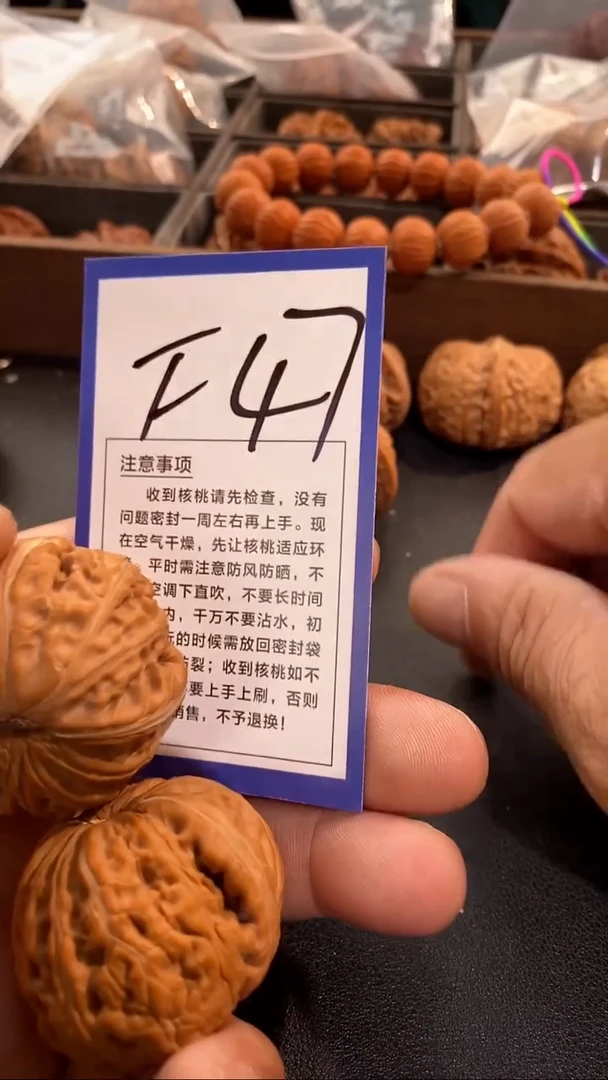 F47
注意事项
收到核桃请先检查，没有
问题密封一周左右再上手。现
在空气干燥，先让核桃适应环
平时需注意防风防晒，不
空调下直吹，不要长时间
内，千万不要沾水，初
玩的时候需放回密封袋
防裂；收到核桃如不
要上手上刷，否则
销售，不予退换！